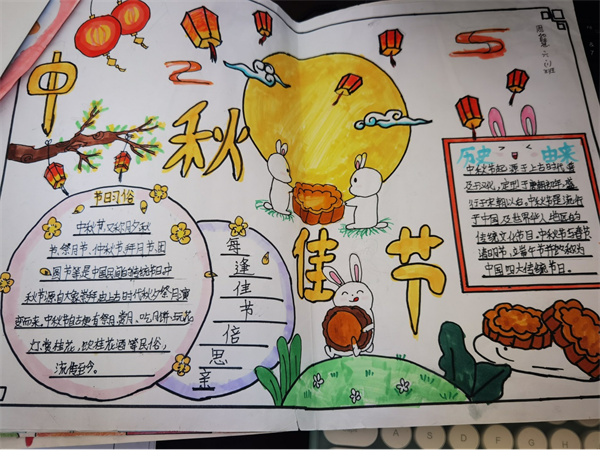 中
秋
佳
节
节日习俗
中秋节，又称月夕、秋
节、祭月节、仲秋节、拜月节、团
圆节等，是中国民间的传统节日。中
秋节源自天象崇拜，由上古时代秋夕祭月演
变而来。中秋节自古便有祭月、赏月、吃月饼、玩花
灯、赏桂花、饮桂花酒等民俗，
流传至今。
每
逢
佳
节
倍
思
亲
六（1）班
历史
由来
中秋节起源于上古时代，普
及于汉代，定型于唐朝初年，盛
行于宋朝以后。中秋节是流行
于中国及世界华人地区的
传统文化节日，中秋节与春节
清明节、端午节并称为
中国四大传统节日。